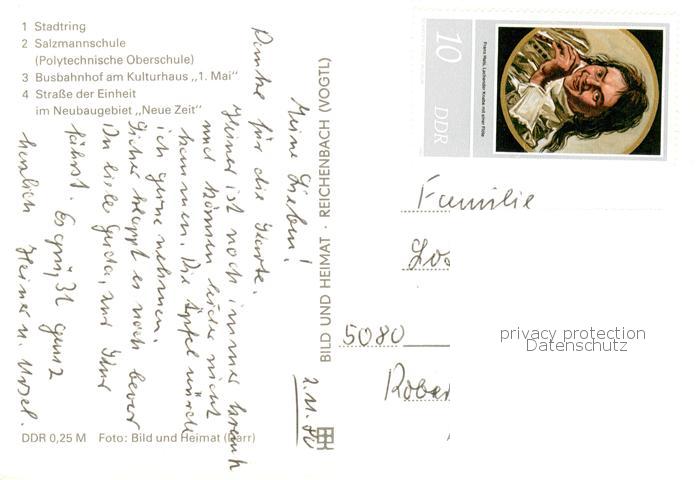 1 Stadtring
2 Salzmannschule
(Polytechnische Oberschule)
3 Busbahnhof am Kulturhaus „1. Mai"
4 Straße der Einheit
im Neubaugebiet „Neue Zeit"
2.11.80
Meine Lieben!
Danke für die Karte.
Heiner ist noch immer krank
und können leider nicht
kommen. Die Äpfel würde
ich gerne nehmen.
Sicher klappt es noch bevor
Du liebe Gerda, zur Kur
fährst. Es grüßt ganz
herzlich Heiner u. Ursel.
DDR 0,25 M Foto: Bild und Heimat (Darr)
BILD UND HEIMAT · REICHENBACH (VOGTL)
10
DDR
Frans Hals, Lachender Knabe mit einer Flöte
Familie
5080
privacy protection
Datenschutz